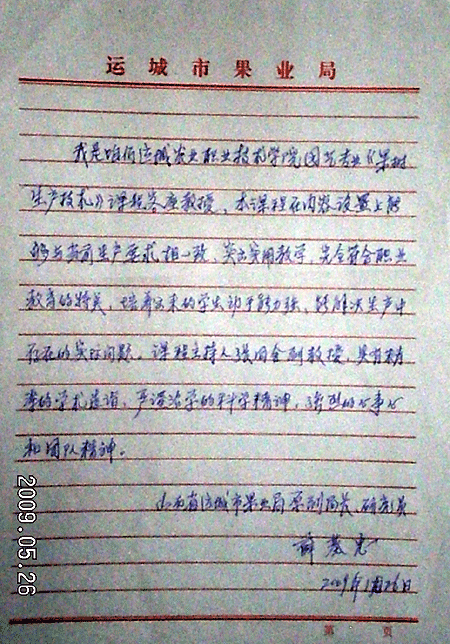 运城市果业局
我是咱们运城农业职业技术学院园艺专业《果树
生产技术》课程客座教授，本课程在内容设置上能
够与当前生产要求相一致，突出实用教学，完全符合职业
教育的特点，培养出来的学生动手能力强，能解决生产中
存在的实际问题。课程主持人张国全副教授，具有精
湛的学术造诣，严谨治学的科学精神，强烈的事业心
和团队精神。
山西省运城市果业局 原副局长、研究员
2009年1月26日
第 页
2009.05.26